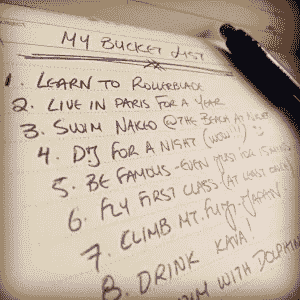 MY BUCKET LIST
1. LEARN TO ROLLERBLADE
2. LIVE IN PARIS FOR A YEAR
3. SWIM NAKED @ THE BEACH AT NIGHT
4. DJ FOR A NIGHT (WOW!!!)
5. BE FAMOUS - EVEN JUST FOR 15 MINS
6. FLY FIRST CLASS (AT LEAST ONCE)
7. CLIMB MT. FUJI - JAPAN
8. DRINK KAVA!
SWIM WITH DOLPHIN